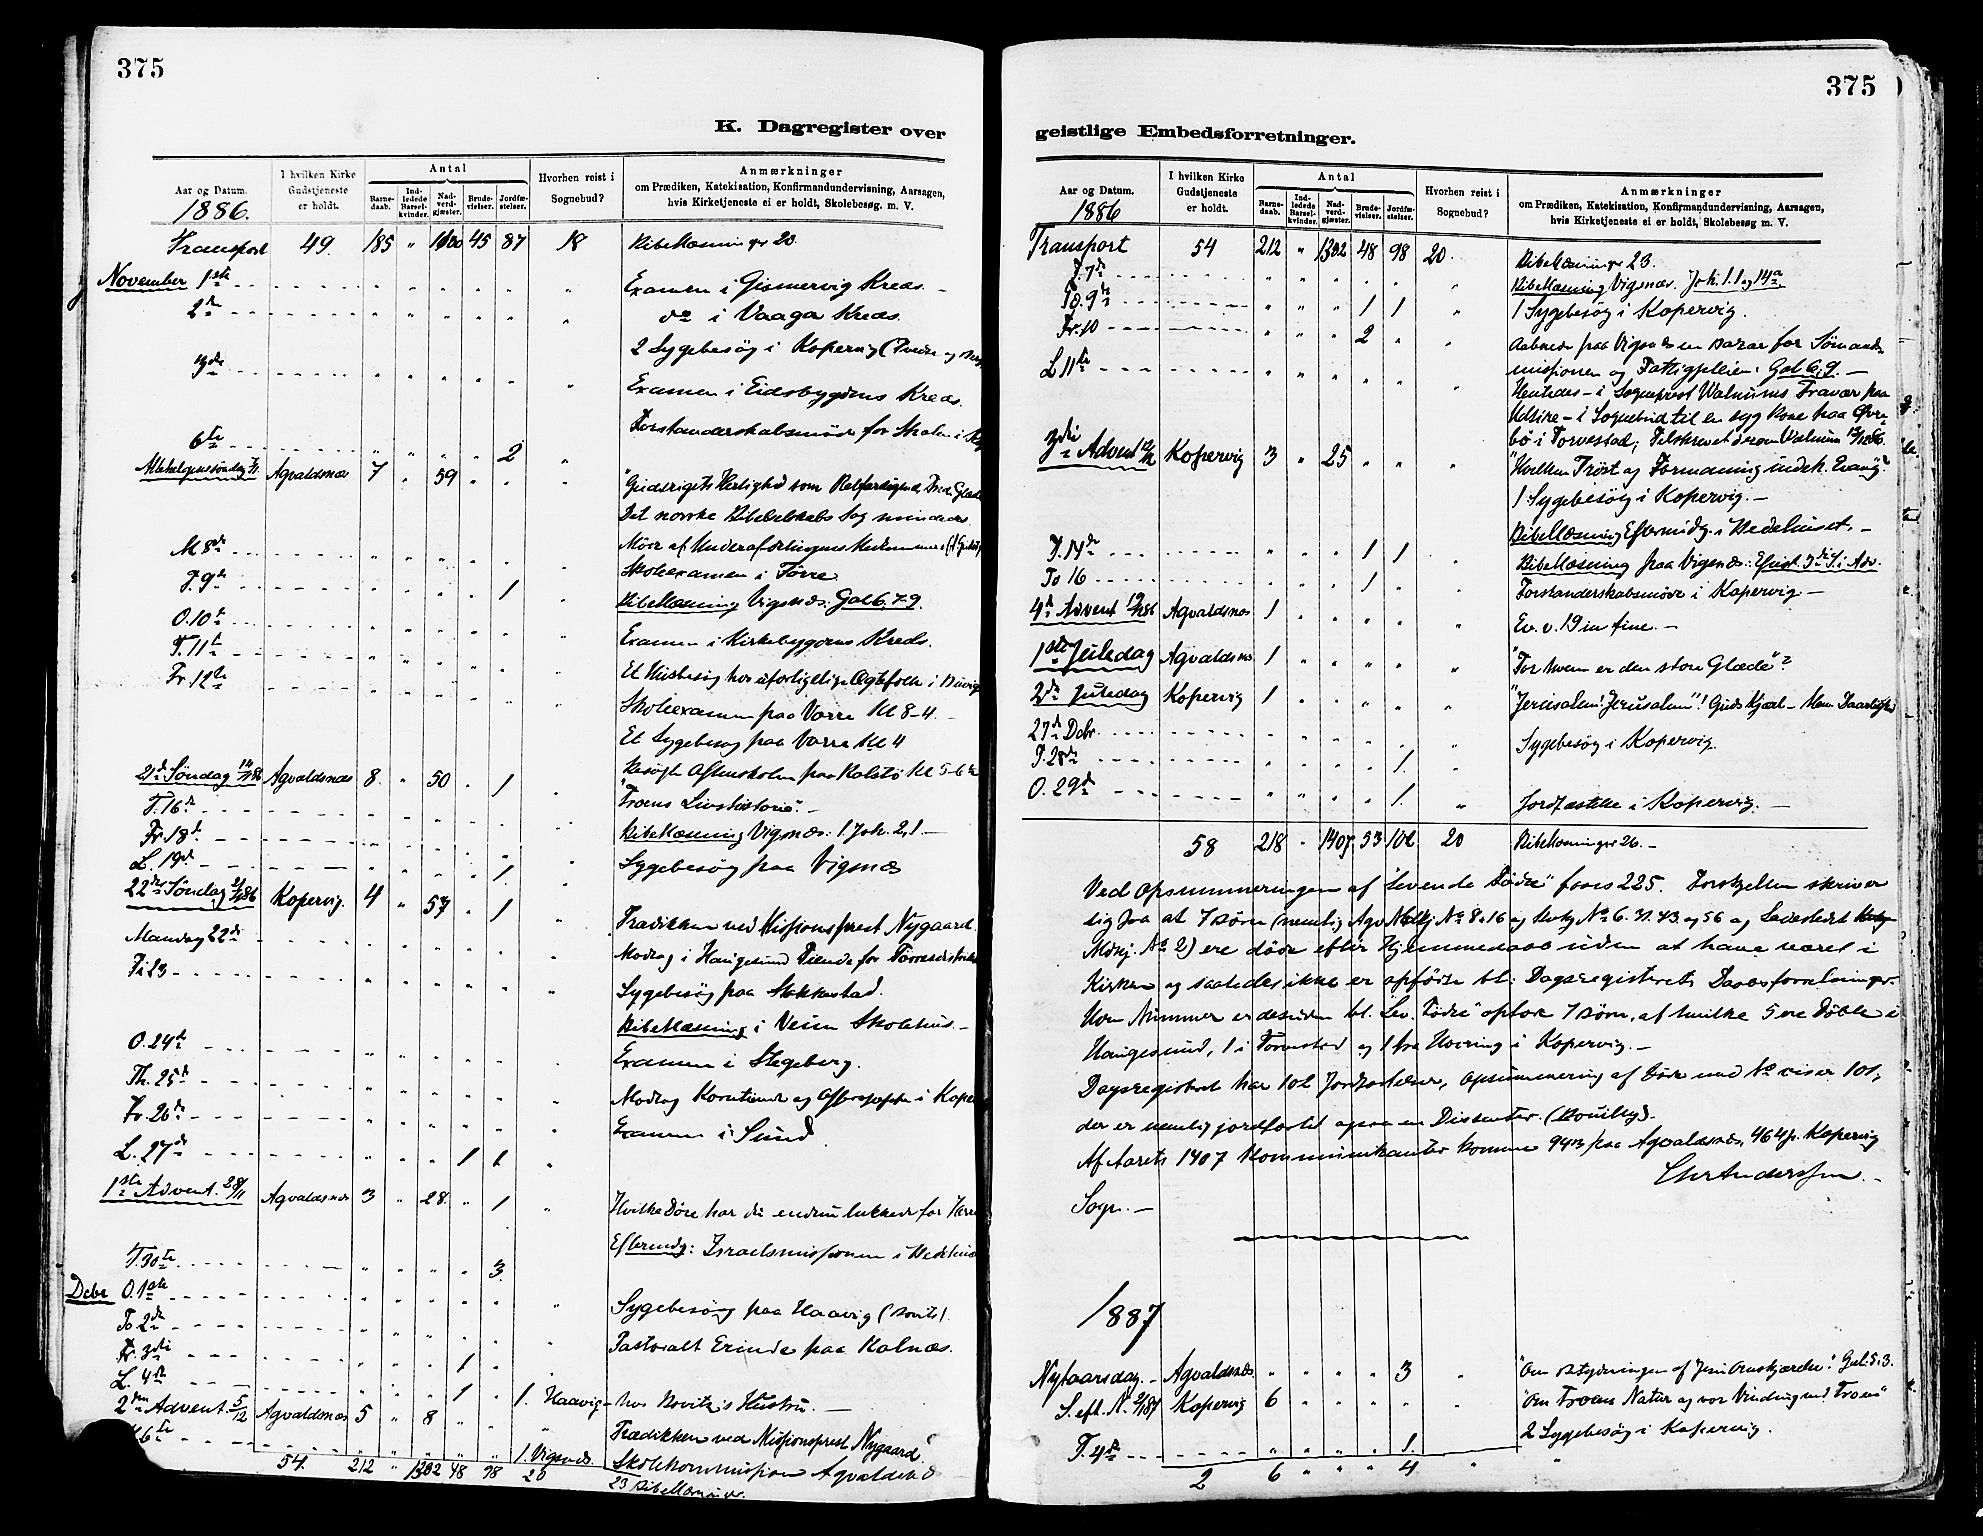 375
K. Dagregister over
Aar og Datum.
1886.
I hvilken Kirke Gudstjeneste er holdt.
Antal
Barnedaab.
Indledede Barselkvinder.
Nadverdgjæster.
Brudevielser.
Jordfæstelser.
Hvorhen reist i Sognebud?
Anmærkninger
om Prædiken, Katekisation, Konfirmandundervisning, Aarsagen,
hvis Kirketjeneste ei er holdt, Skolebesøg. m. V.
Transport 49. 185 " 45 87 18 Bibellæsninger 20.
November 1ste Examen i Gismervig Kreds.
2den do i Vaaga Kreds.
2 Sygebesøg i Kopervig
3die Examen i Eidsbygdens Kreds.
Forstanderskabsmøde for Skolen i
6te 2
Allehelgenssøndag Agvaldsnæs 7 " 59 " "
Det norske Bibelselskabs Sag
M 8de
Skoleexamen i Førre
T. 9de 1 Bibellæsning Vigsnæs: Gal 6, 7-9.
O. 10de
T. 11te Examen i Kirkebygdens Kreds.
Fr. 12te Et Husbesøg hos uforligelige Ægtefolk i
Skoleexamen paa Vorre Kl 8-4.
Et Sygebesøg paa Vorre Kl 4
Besøgte Aftenskolen paa Kolstø Kl 5-6
21de Søndag 14/11 86 Agvaldsnæs 8. " 50 " 1 "Troens Livshistorie".
T. 16de
Bibellæsning Vigsnæs: 1 Joh. 2, 1.
Fr. 18de
L. 19de 1 Sygebesøg paa Vigsnæs
22de Søndag 21/11 86 Kopervig. 4 " 57 " 1 Prædikken ved Missionsprest Nygaard.
Mandag 22de Modtog i Haugesund Tiende for
Ti 23 Sygebesøg paa Stokkastad.
Bibellæsning i Veim Skolehus.
O. 24de Examen i Stegeberg.
Th. 25de Modtog Korntiende og i
Fr. 26de Examen i Sund.
L. 27de 1 1
1ste Advent. 28/11 Agvaldsnæs 3 " 28. " 1 Hvilke Døre har du endnu lukkede for
Eftermdg: Israelsmissionen i Bedehus
T. 30te 3
Dcbr O. 1ste Sygebesøg paa Haavig
To 2den Pastoralt Erinde paa Kolnæs.
Fr. 3die 1
L. 4de 1 1. Haavig hos Hustru.
2den Advent. 5/12 Agvaldsnæs 5 " 8 " " Prædikken ved Missionsprest Nygaard
6te 1. Vigsnæs Skolekommission Agvaldsnæs
54. 212 " 1302 48 98 20
23 Bibellæsninger.
375
geistlige Embedsforretninger.
Aar og Datum.
1886
I hvilken Kirke Gudstjeneste er holdt.
Antal
Barnedaab.
Indledede Barselkvinder.
Nadverdgjæster.
Brudevielser.
Jordfæstelser.
Hvorhen reist i Sognebud?
Anmærkninger
om Prædiken, Katekisation, Konfirmandundervisning, Aarsagen,
hvis Kirketjeneste ei er holdt, Skolebesøg m. V.
Transport 54 212 " 1302 48 98 20. Bibellæsninger 23.
T. 7de Bibellæsning Vigsnæs. Joh. 1. 1 og 14.
To. 9de 1 1 1 Sygebesøg i Kopervig.
Fr. 10 2 Aabnede paa Vigsnæs en Bazar for Sømands-
missionen og Fattigpleien: Gal 6, 9.
L 11te Hentedes - i Sogneprest Walnums Fravær paa
Utsire - i Sognebud til en syg Kone paa
bø i Torvestad;
3die Advent 12/12 Kopervig 3 " 25 "Hvilken Trøst og Formaning
1 Sygebesøg i Kopervig.
Bibellæsning Eftermidg. i Bedehuset.
T. 14de 1 1 Bibellæsning paa Vigsnæs: Epist. 3die S. i Adv.
To 16 1 Forstanderskabsmøde i Kopervig
4de Advent 19/12 86 Agvaldsnæs 1 Ev. v. 19 in fine.
1ste Juledag Agvaldsnæs 1 "For hvem er den store Glæde"?
2den Juledag Kopervig 1 "Jerusalem! Jerusalem"! Guds Kjærl. - Men Daarlighed
27de Dcbr. Sygebesøg i Kopervig.
T. 28de 1.
O. 29de 1. Jordfæstelse i Kopervig.
58 218 " 1407 53 102 20 Bibellæsninger 26.
Ved Opsummeringen af "Levende Fødte" faaes 225. Forskjellen skriver
sig fra at 7 Børn (nemlig Agv Mdkj No 8 o 16 og Kvkj No 6. 31. 43 og 56 og
Mdkj. No 2) ere døde efter Hjemmedaab uden at have været i
Kirken og saaledes ikke er opførte bl: Dagsregisterets Daabsforretninger.
Uden Nummer er desuden bl. "Lev. Fødte" opført 7 Børn, af hvilke 5 ere døbte i
Haugesund, 1 i Torvestad og 1 fra Hvering i Kopervig.
Dagsregistret har 102 Jordfæstelser, Opsummering af Døde med No viser 101,
der er nemlig jordfæstet ogsaa en Dissenter.
Af Aarets 1407 Kommunikanter komme 943 paa Agvaldsnæs, 464 p. Kopervig
Sogn.
Chr Anderssen.
1887
Nytaarsdag. Agvaldsnæs. 3 "Om Betydningen af Jesu Omskjærelse". Gal. 5. 3.
S. eft. N. 2/1 87 Kopervig 6 "Om Troens Natur og vor Vinding ved Troen"
T. 4de 1. 2 Sygebesøg i Kopervig.
2 6 " " " 4